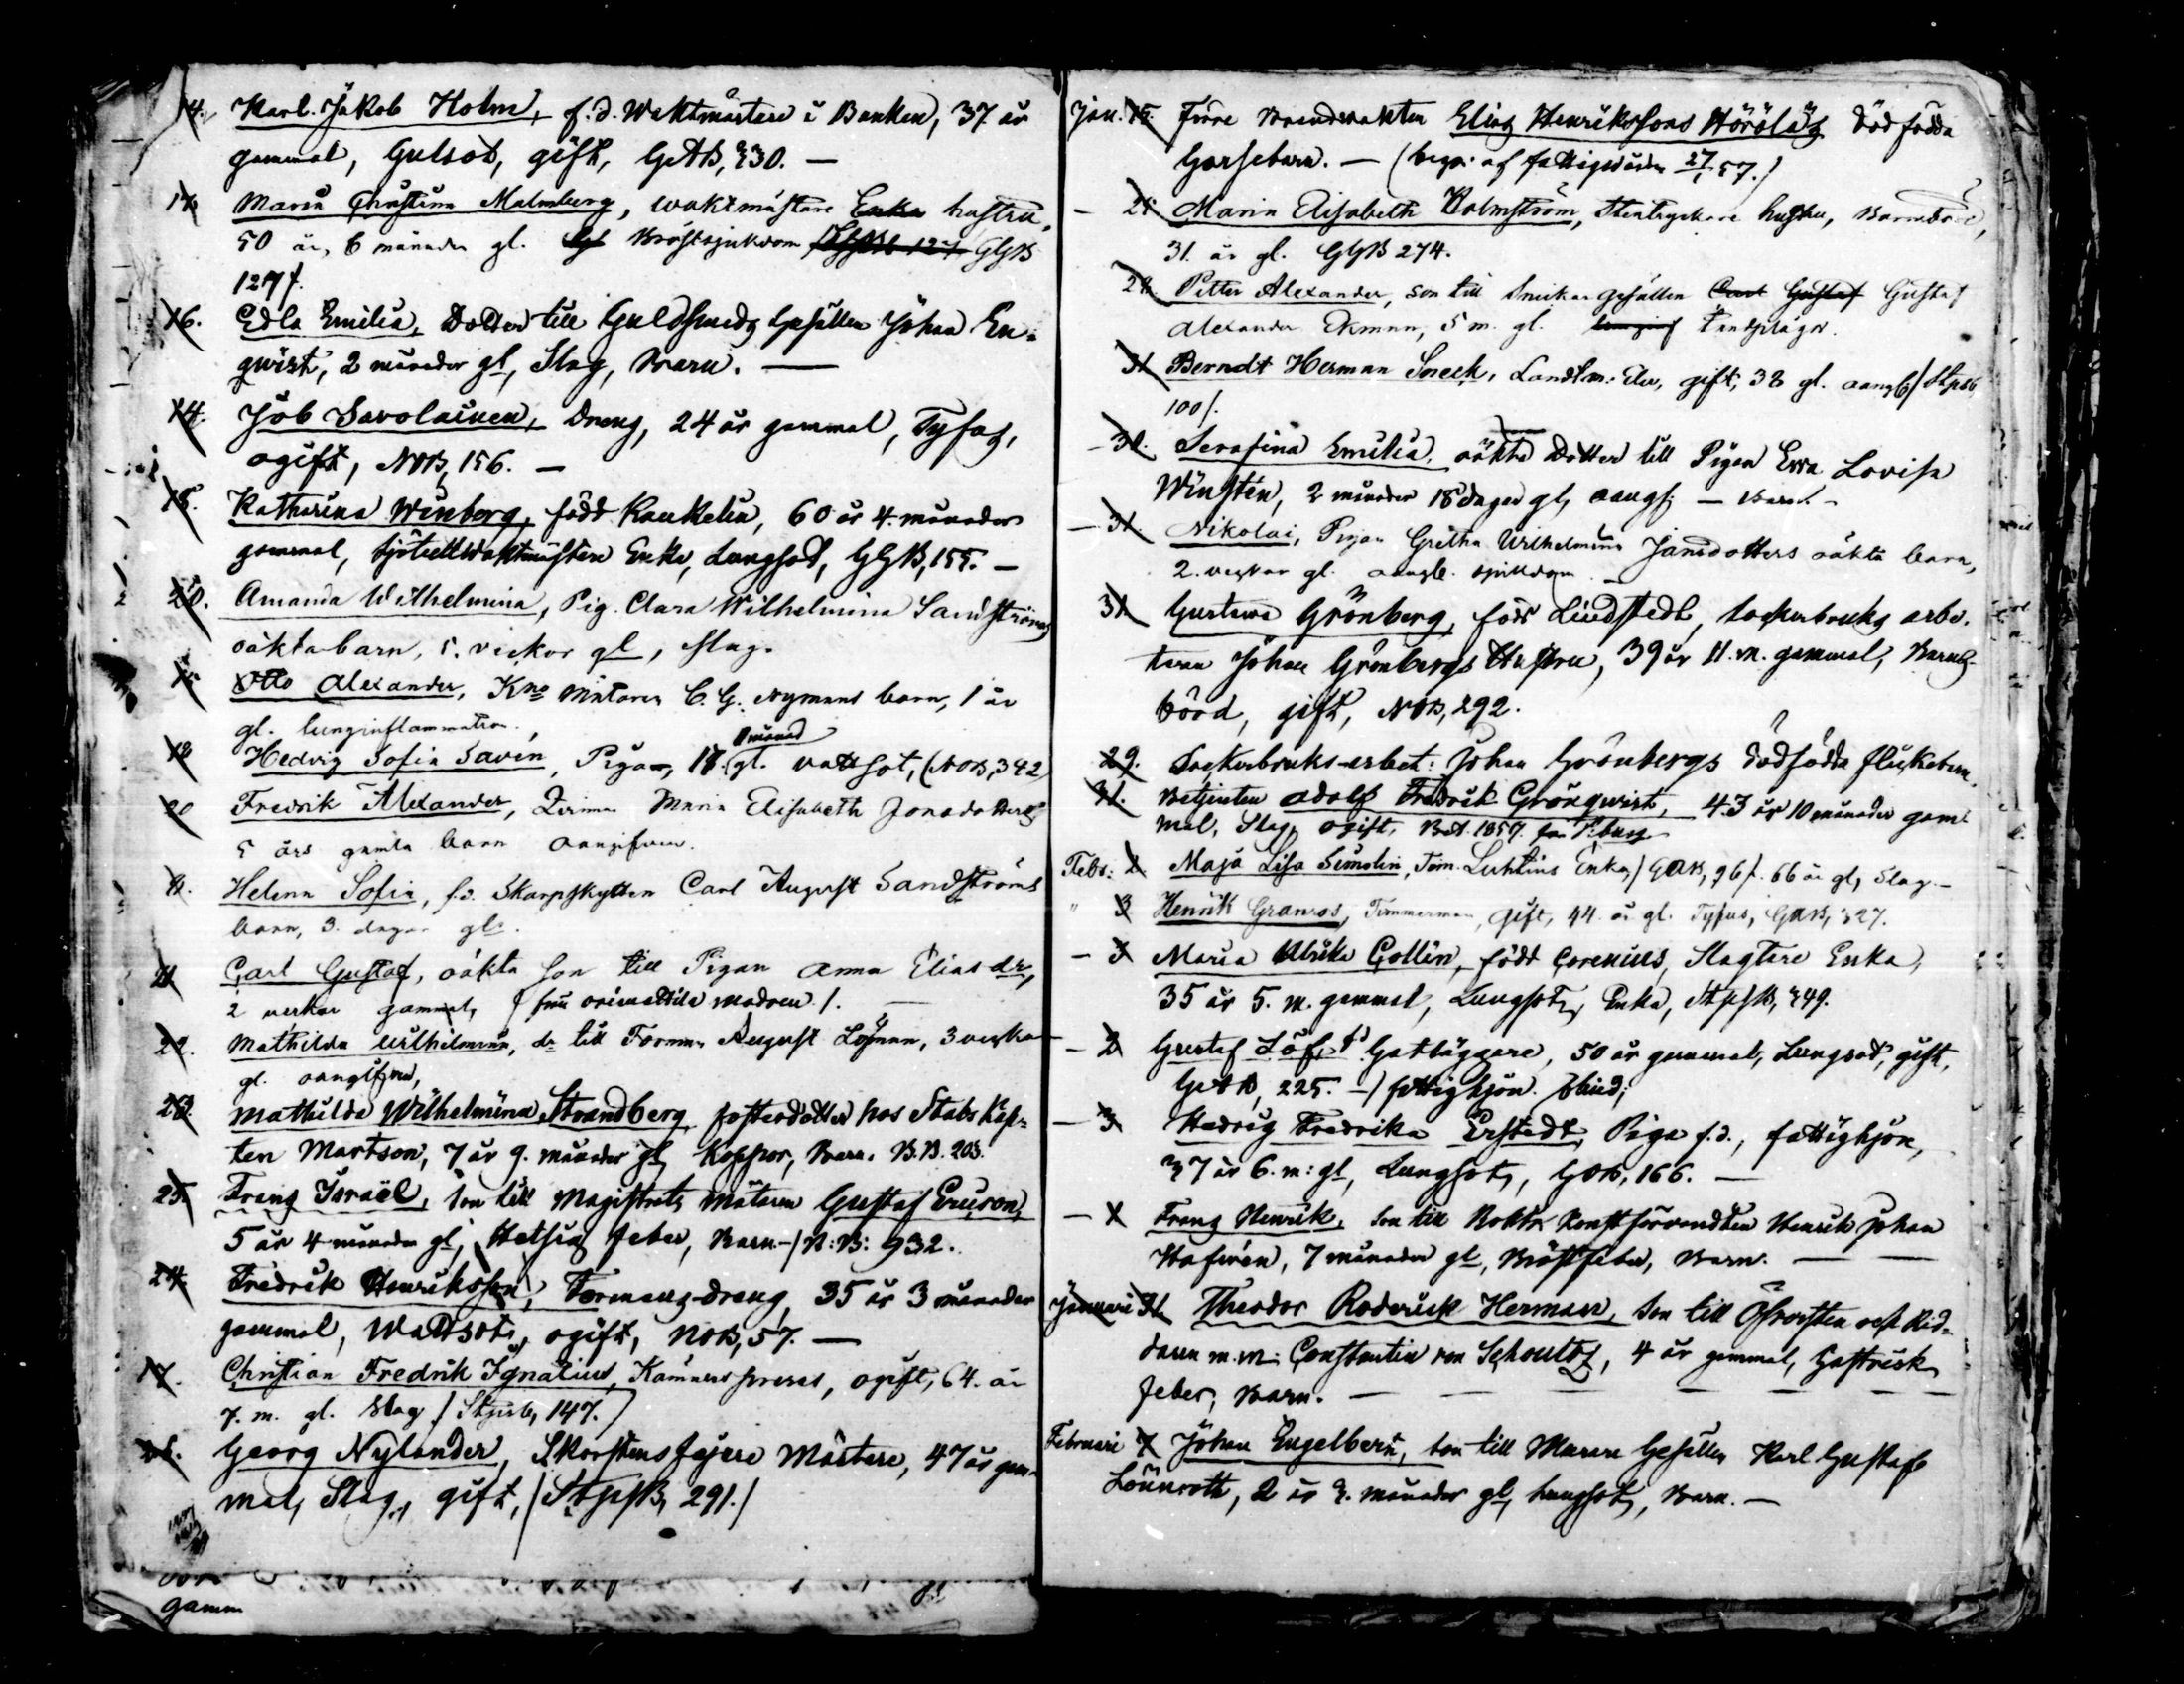 14. Karl Jakob Holm, f.d. Waktmästare i Banken, 37 år
gammal, Gulsot, gift, GAB, 330. —
14 Maria Christina Malmberg, waktmästare Enka hustru,
50 år, 6 månader gl. Bröstsjukdom GGB
127/.
16. Edla Emilia, Dotter till Guldsmeds Gesällen Johan En-
qwist, 2 månader gl, Slag, Barn. —
14. Job Savolainen, Dreng, 24 år gammal, Tyfus,
ogift, NOB, 156. —
15. Katharina Winberg, född Kaukelin, 60 år 4 månader
gammal, Enka, Lungsot, GGB, 155. —
20. Amanda Wilhelmina, Pig. Clara Wilhelmina Sandströms
oäkta barn, 5 vickor gl, slag.
Otto Alexander, Kno Mätaren C. G. Nymans barn, 1 år
gl. lunginflammation.
18 Hedvig Sofia Savén, Piga, 18 gl. 1 månad vattsot, (NOB, 342)
20 Fredrik Alexander, Maria Elisabeth Jonsdotters
5 års gamla barn oangifven.
Helena Sofia, f.d. Skarpskytten Carl August Sandströms
barn, 3 dagar gl.
21 Carl Gustaf, oäkta son till Pigan Anna Eliasdr,
2 veckor gammal, modren /. —
22. Mathilda Wilhelmina, dr till Forman August Löfman, 3 veckor
gl. oangifven,
23. Mathilda Wilhelmina Strandberg, fosterdotter hos Stabs Kap-
ten Martson, 7 år 9 månader gl, Koppor, Barn. B.B. 203.
25. Frans Israël, son till Magistrats Mätaren Gustaf Ericson,
5 år 4 månader gl, Hetsig feber, Barn —/N:B: 932.
24. Fredrik Henriksson, Formans-dreng, 35 år 3 månader
gammal, Wattsot, ogift, NOB, 57. —
17. Christian Fredrik Ignatius, Kämners preses, ogift, 64 år
7. m. gl. Slag / 147.
26. Georg Nylander, Skorstensfejare Mästare, 47 år gam-
mal, Slag, gift, /StpsB, 291./
gamm
Jan. 15. Förre Brandvakten Elias Henrikssons Hörölä död födda
Gossebarn. — (begr. af fattigvården 27/1 57.)
— 25 Maria Elisabeth Holmström, Stentryckare hustru, Barnsbörd,
31 år gl. GGB 274.
28. Petter Alexander, son till Snickar gesällen Carl Gustaf Gustaf
Alexander Ekman, 5 m. gl. Tandplågor.
31 Berndt Herman Sneck, Landtm: Elev, gift, 38 gl. oangb/ Stpsb
100/.
— 30. Serafina Emilia, oäkta Dotter till Pigan Eva Lovisa
Winstén, 2 månader 18 dagar gl, oangf: — Barn. —
— 31. Nikolai, Pigan Gretha Wilhelmina Jansdotters oäkta barn,
2. veckor gl. oangb. sjukdom. —
31 Gustava Grönberg, född Lindstedt, sockerbruks arbe-
taren Johan Grönbergs Hustru, 39 år 11. m. gammal, Barns-
börd, gift, NOB, 292.
29. Sockerbruks-arbet: Johan Grönbergs dödfödda flickebarn.
31. Betjenten Adolf Fredrik Grönqwist, 43 år 10 månader gam-
mal, Slag, ogift,
Febr: 2 Maja Lisa Simolin, Tim. Luhtins Enka, /GAB, 96/. 66 år gl, Slag. —
" 3 Henrik Granroos, Timmerman, gift, 44 år gl. Tyfus, GAB, 327.
— 3 Maria Ulrika Collin, född Corenius, Slagtare Enka,
35 år 5. m. gammal, Lungsot, Enka, StpsB, 349.
— 2 Gustaf Löf, fd Gatläggare, 50 år gammal, Lungsot, gift,
GAB, 225. —/ fattighjon. blind;
— 3 Hedvig Fredrika Erstedt, Piga f.d., fattighjon,
37 år 6. m: gl, Lungsot, GOB, 166. —
— Frans Henrik, son till Henrik Johan
Hafrén, 7 månader gl, Bröstfeber, Barn. — —
Januari 31. Theodor Roderick Herman, son till Öfversten och Rid-
daren m.m. Constantin von Schoultz, 4 år gammal, Gastrisk
feber, Barn. — — — — — —
Februari 7 Johan Engelbert, son till Murare Gesällen Karl Gustaf
Lönnroth, 2 år 3. månader gl, Lungsot, Barn. —